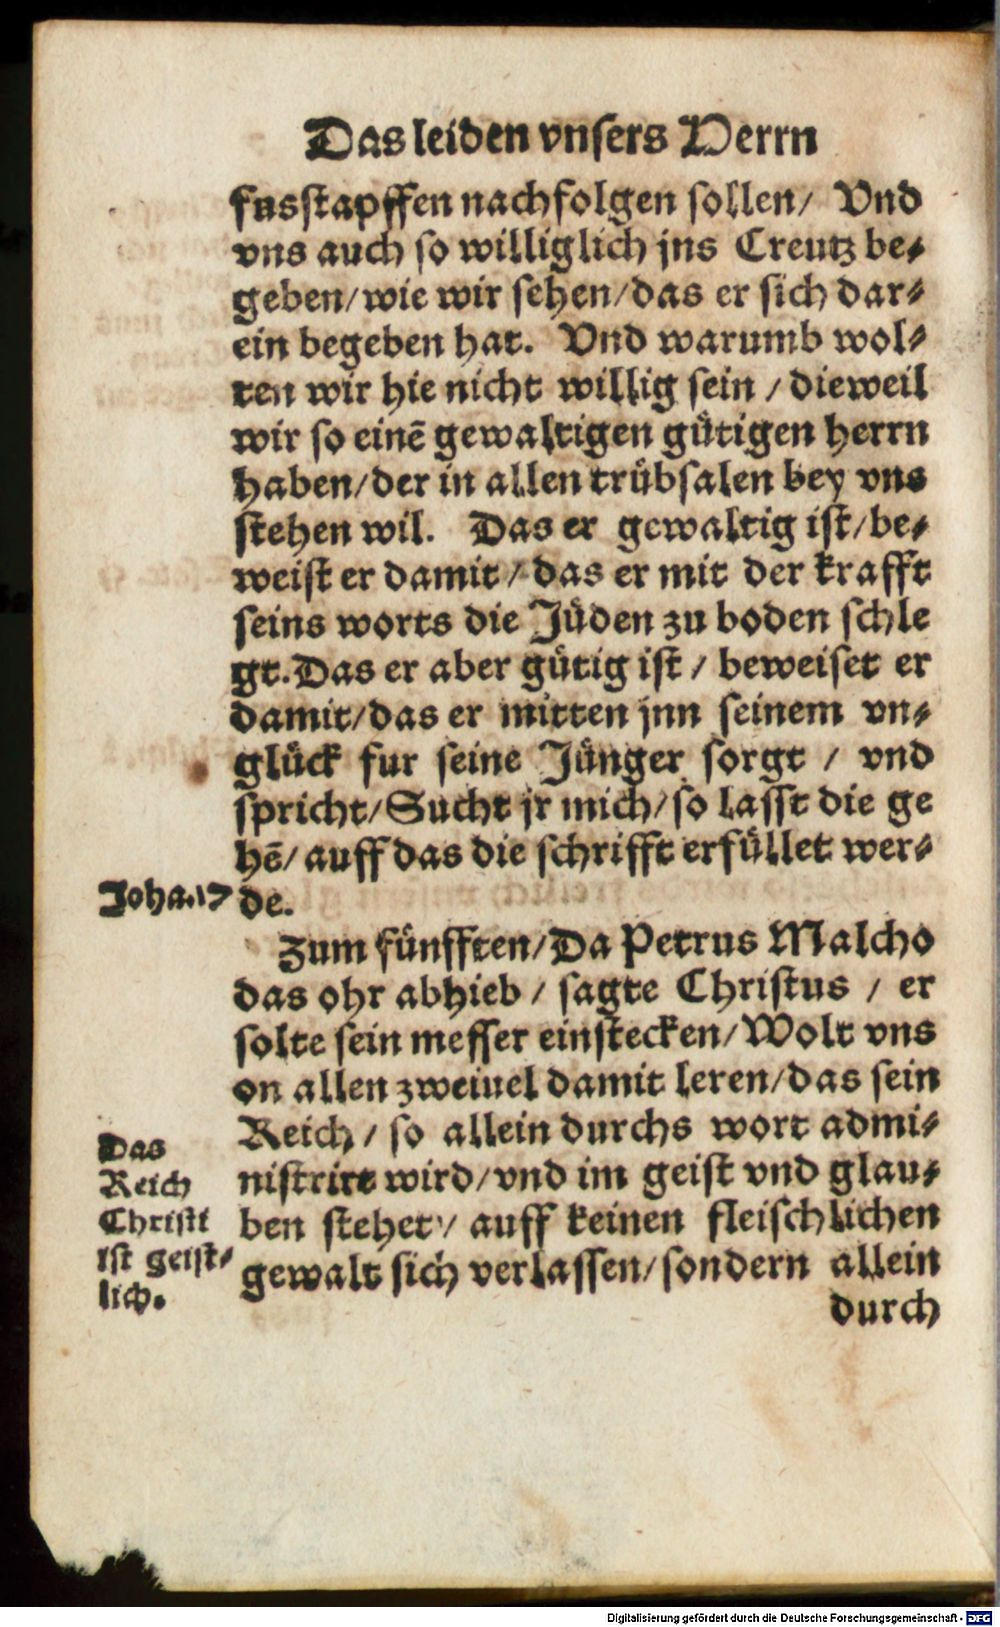 Das leiden vnsers Herrn
fusstapffen nachfolgen sollen/ Vnd
vns auch so williglich jns Creutz be-
geben/wie wir sehen/das er sich dar-
ein begeben hat. Vnd warumb wol-
ten wir hie nicht willig sein / dieweil
wir so einē gewaltigen gütigen herrn
haben/der in allen trübsalen bey vns
stehen wil. Das er gewaltig ist/be-
weist er damit / das er mit der krafft
seins worts die Jüden zu boden schle
gt.Das er aber gütig ist / beweiset er
damit/das er mitten jnn seinem vn-
glück fur seine Jünger sorgt / vnd
spricht/Sucht jr mich/so lasst die ge
hē/ auff das die schrifft erfüllet wer-
Joha.17
de.
Zum fünfften/Da Petrus Malcho
das ohr abhieb / sagte Christus / er
solte sein messer einstecken/Wolt vns
on allen zweiuel damit leren/das sein
Reich / so allein durchs wort admi-
nistrirt wird/vnd im geist vnd glau-
ben stehet / auff keinen fleischlichen
gewalt sich verlassen/sondern allein
durch
Das
Reich
Christi
ist geist-
lich.
Digitalisierung gefördert durch die Deutsche Forschungsgemeinschaft - DFG